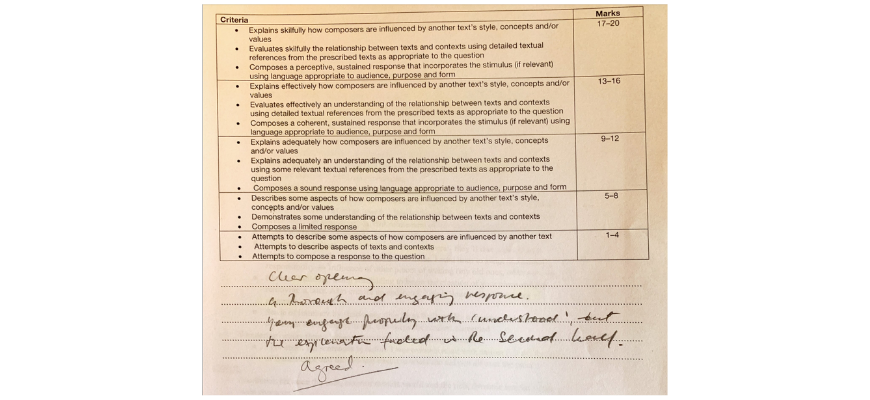 Criteria Marks
• Explains skilfully how composers are influenced by another text's style, concepts and/or 17–20
values
• Evaluates skilfully the relationship between texts and contexts using detailed textual
references from the prescribed texts as appropriate to the question
• Composes a perceptive, sustained response that incorporates the stimulus (if relevant)
using language appropriate to audience, purpose and form
• Explains effectively how composers are influenced by another text's style, concepts and/or 13–16
values
• Evaluates effectively an understanding of the relationship between texts and contexts
using detailed textual references from the prescribed texts as appropriate to the question
• Composes a coherent, sustained response that incorporates the stimulus (if relevant) using
language appropriate to audience, purpose and form
• Explains adequately how composers are influenced by another text's style, concepts 9–12
and/or values
• Explains adequately an understanding of the relationship between texts and contexts
using some relevant textual references from the prescribed texts as appropriate to the
question
• Composes a sound response using language appropriate to audience, purpose and form
• Describes some aspects of how composers are influenced by another text's style, 5–8
concepts and/or values
• Demonstrates some understanding of the relationship between texts and contexts
• Composes a limited response
• Attempts to describe some aspects of how composers are influenced by another text 1–4
• Attempts to describe aspects of texts and contexts
• Attempts to compose a response to the question
Clear opening
a thorough and engaging response.
You engage properly with 'understood', but
the explanation faded in the second half.
agreed.